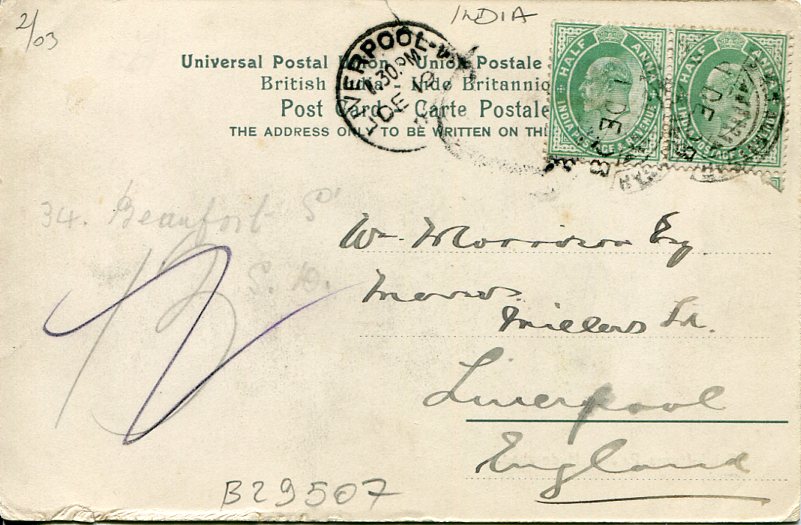 2/03
INDIA
Universal Postal Union Union Postale
British India Inde Britannique
Post Card Carte Postale
THE ADDRESS ONLY TO BE WRITTEN ON THE
LIVERPOOL
.30 PM
DE
HALF ANNA
INDIA POSTAGE & REVENUE
DE
HALF ANNA
INDIA POSTAGE & REVENUE
DE
34. Beaufort St
S. W.
Wm Morrison Esq
Messrs
Millers Ld.
Liverpool
England
B29507